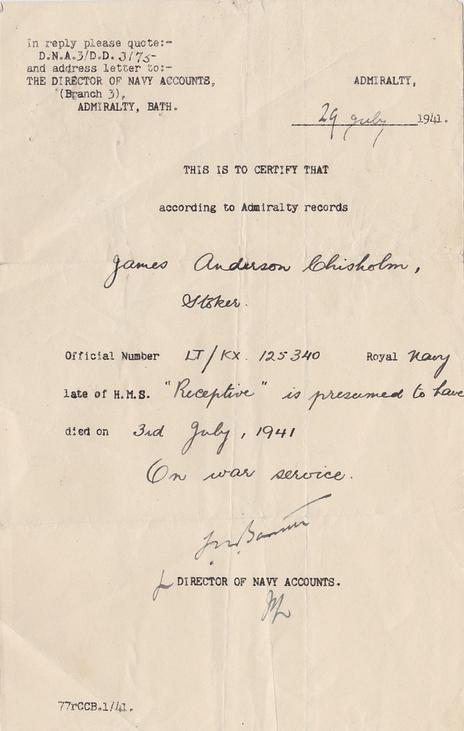 In reply please quote:-
D.N.A.3/D.D. 3/75-
and address letter to:-
THE DIRECTOR OF NAVY ACCOUNTS,
(Branch 3),
ADMIRALTY, BATH.
ADMIRALTY,
29 July 1941.
THIS IS TO CERTIFY THAT
according to Admiralty records
James Anderson Chisholm,
Stoker.
Official Number LT/KX. 125340 Royal Navy
late of H.M.S. "Receptive" is presumed to have
died on 3rd July, 1941
On war service.
DIRECTOR OF NAVY ACCOUNTS.
77rCCB.1/41.